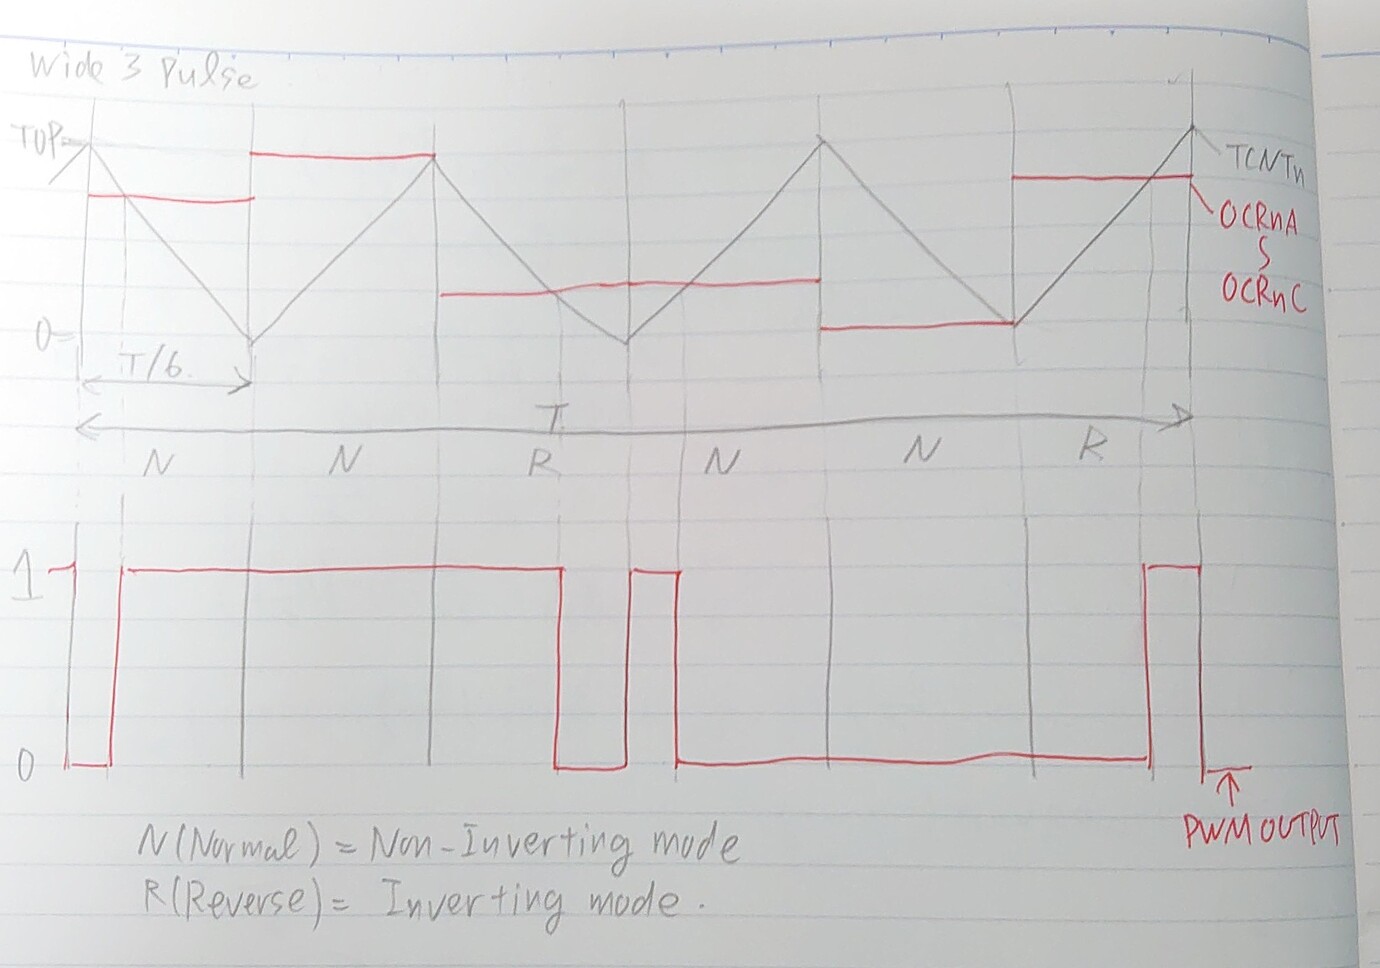 Wide 3 Pulse
TOP
TCNTn
OCRnA
S
OCRnC
0
T/6
T
N N R N N R
1
0
PWM OUTPUT
N(Normal) = Non-Inverting mode
R(Reverse) = Inverting mode.